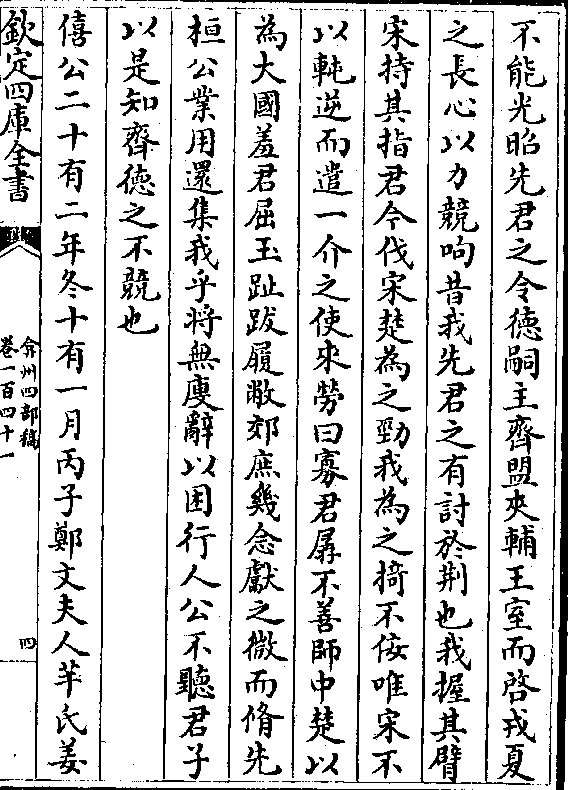 不能光昭先君之令德嗣主齊盟夾輔王室而啓戎夏
之長心以力競呴昔我先君之有討於荆也我握其臂
宋持其指君今伐宋楚為之勁我為之掎不佞唯宋不
以軘逆而遣一介之使來勞曰寡君孱不善師中楚以
為大國羞君屈玉趾跋履敝郊庶幾念獻之微而脩先
桓公業用還集我乎将無廋辭以困行人公不聽君子
以是知齊德之不競也
僖公二十有二年冬十有一月丙子鄭文夫人芊氏姜
欽定四庫全書
弇州四部稿
卷一百四十一
四